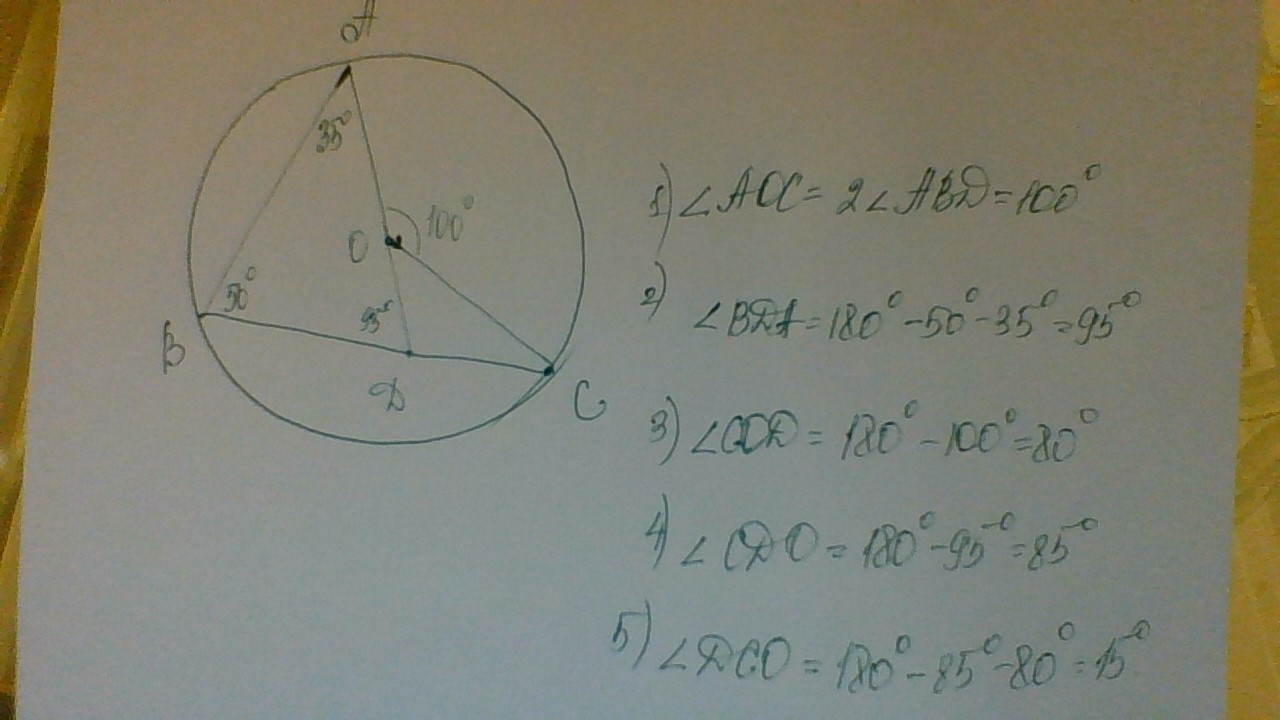 A
35°
O 100°
50°
95°
B
D
C
1) ∠AOC = 2∠ABD = 100°
2) ∠BDA = 180° - 50° - 35° = 95°
3) ∠COD = 180° - 100° = 80°
4) ∠CDO = 180° - 95° = 85°
5) ∠DCO = 180° - 85° - 80° = 15°